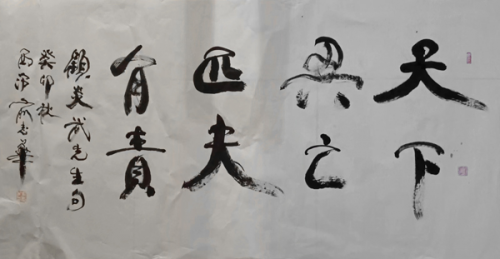 天下
興亡
匹夫
有責
顧炎武先生句
癸卯秋